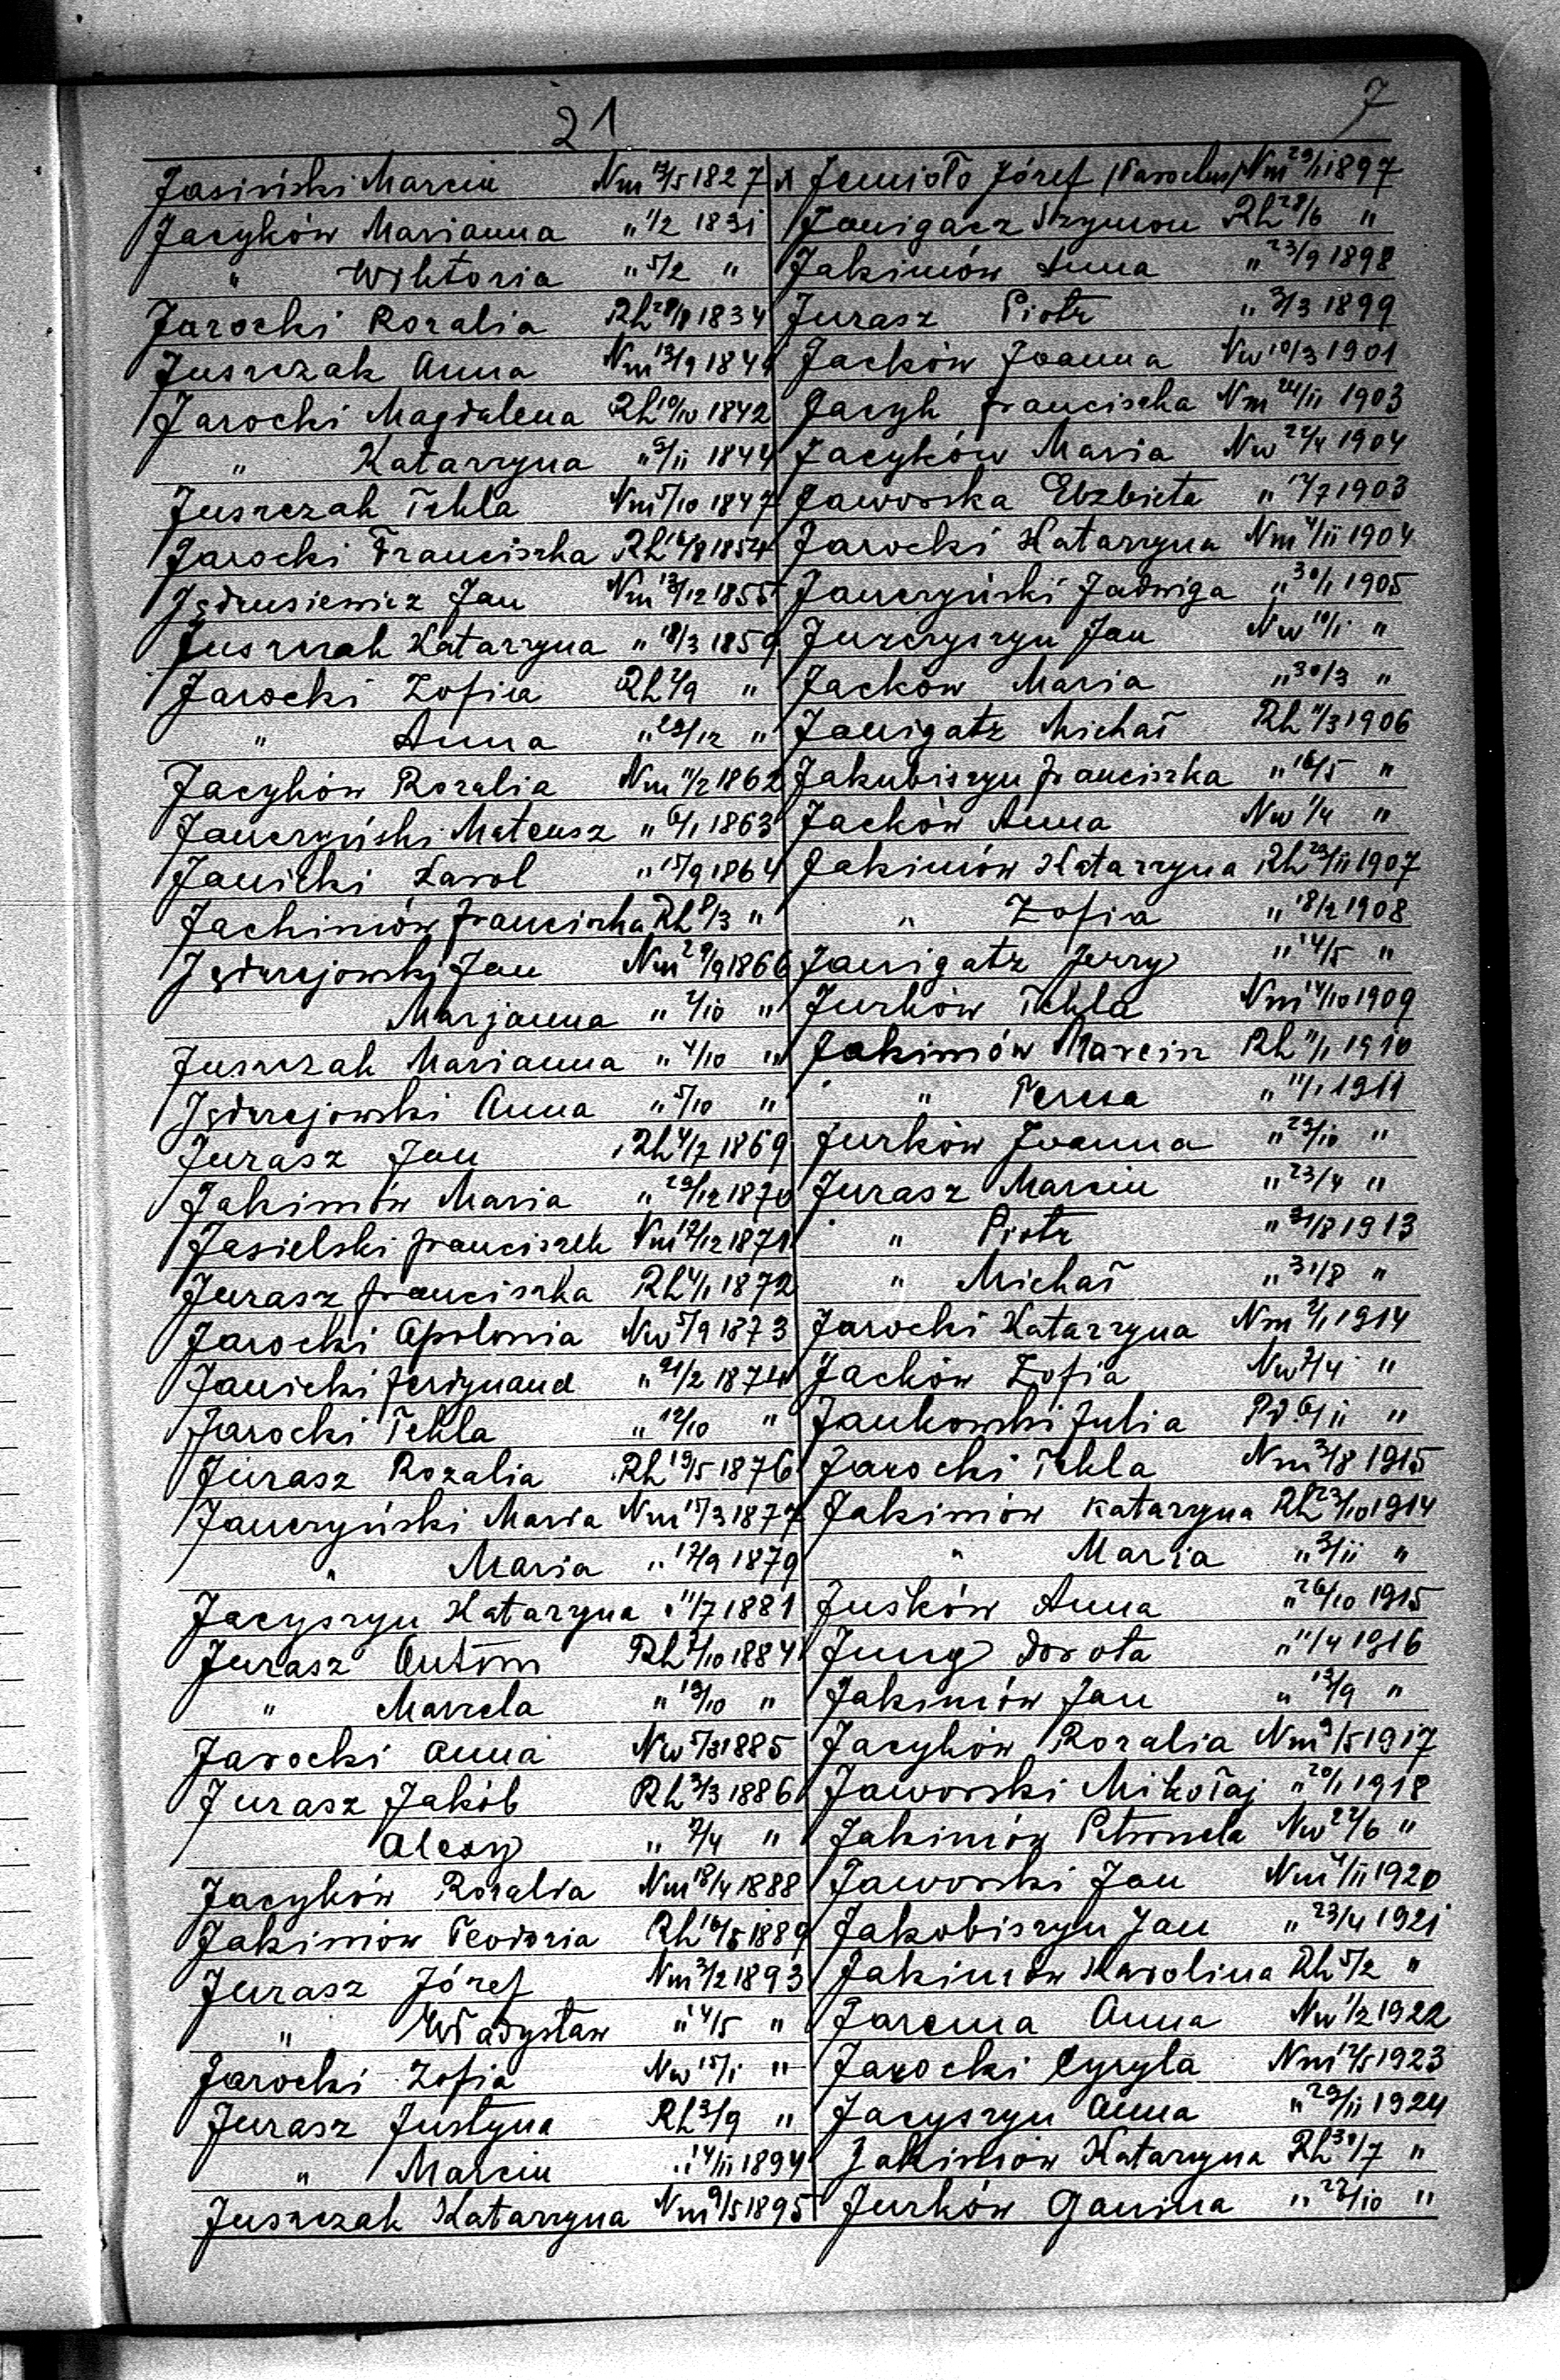 21
J
Jasiński Marcin Nm 13/5 1827
Jacyków Marianna " 1/2 1831
" Wiktoria " 5/2 "
Jarocki Rozalia Rh 28/8 1834
Juszczak Anna Nm 13/9 1841
Jarocki Magdalena Rh 10/10 1842
" Katarzyna " 9/11 1844
Juszczak Tekla Nm 5/10 1847
Jarocki Franciszka Rh 16/8 1854
Jędrusiewicz Jan Nm 13/12 1855
Juszczak Katarzyna " 18/3 1859
Jarocki Zofia Rh 2/9 "
" Anna " 29/12 "
Jacyków Rozalia Nm 11/2 1862
Janczyński Mateusz " 6/1 1863
Janicki Karol " 15/9 1864
Jachimów Franciszka Rh 8/3 "
Jędrzejowski Jan Nm 29/9 1866
Marjanna " 2/10 "
Juszczak Marianna " 4/10 "
Jędrzejowski Anna " 5/10 "
Jurasz Jan Rh 4/7 1869
Jakimów Maria " 29/12 1870
Jasielski Franciszek Nm 12/12 1871
Jurasz Franciszka Rh 4/1 1872
Jarocki Apolonia Nw 5/9 1873
Janicki Ferdynand " 21/2 1874
Jarocki Tekla " 12/10 "
Jurasz Rozalia Rh 19/5 1876
Janczyński Maria Nm 15/3 1877
" Maria " 12/9 1879
Jacyszyn Katarzyna " 11/7 1881
Jurasz Antoni Rh 2/10 1884
" Marcela " 19/10 "
Jarocki Anna Nw 5/3 1885
Jurasz Jakób Rh 3/3 1886
Alexy " 2/4 "
Jacyków Rozalia Nm 18/4 1888
Jakimów Teodozia Rh 16/5 1889
Jurasz Józef Nm 3/2 1893
" Władysław " 14/5 "
Jarocki Zofia Nw 15/1 "
Jurasz Justyna Rh 3/9 "
" Marcin " 14/11 1894
Juszczak Katarzyna Nm 9/5 1895
x Jemioło Józef (Parochus) Nm 29/1 1897
Janigacz Szymon Rh 28/6 "
Jakimów Anna " 23/9 1898
Jurasz Piotr " 3/3 1899
Jacków Joanna Nw 10/3 1901
Jacyk Franciszka Nm 24/11 1903
Jacyków Maria Nw 22/4 1904
Jaworska Elzbieta " 17/7 1903
Jarocki Katarzyna Nm 4/11 1904
Janczyński Jadwiga " 30/1 1905
Jurczyszyn Jan Nw 10/1 "
Jacków Maria " 30/3 "
Janigatz Michał Rh 11/3 1906
Jakubiszyn Franciszka " 16/5 "
Jacków Anna Nw 1/4 "
Jakimów Katarzyna Rh 23/11 1907
" Zofia " 18/2 1908
Janigatz Jerzy " 14/5 "
Jurków Tekla Nm 14/10 1909
Jakimów Marcin Rh 11/1 1910
" Teresa " 11/1 1911
Jurków Joanna " 29/10 "
Jurasz Marcin " 23/4 "
" Piotr " 31/8 1913
" Michał " 31/8 "
Jarocki Katarzyna Nm 2/1 1914
Jacków Zofia Nw 2/4 "
Jankowski Julia Pd. 6/11 "
Jarocki Tekla Nm 3/8 1915
Jakimów Katarzyna Rh 23/10 1914
" Maria " 3/11 "
Juśków Anna " 26/10 1915
Jung Dorota " 11/4 1916
Jakimów Jan " 13/9 "
Jacyków Rozalia Nm 9/5 1917
Jaworski Mikołaj " 20/1 1918
Jakimów Petronela Nw 22/6 "
Jaworski Jan Nm 4/11 1920
Jakobiszyn Jan " 23/4 1921
Jakimów Karolina Rh 5/2 "
Jarema Anna Nw 1/2 1922
Jarocki Cyryla Nm 12/5 1923
Jacyszyn Anna " 29/11 1924
Jakimów Katarzyna Rh 30/7 "
Jurków Ganina " 28/10 "